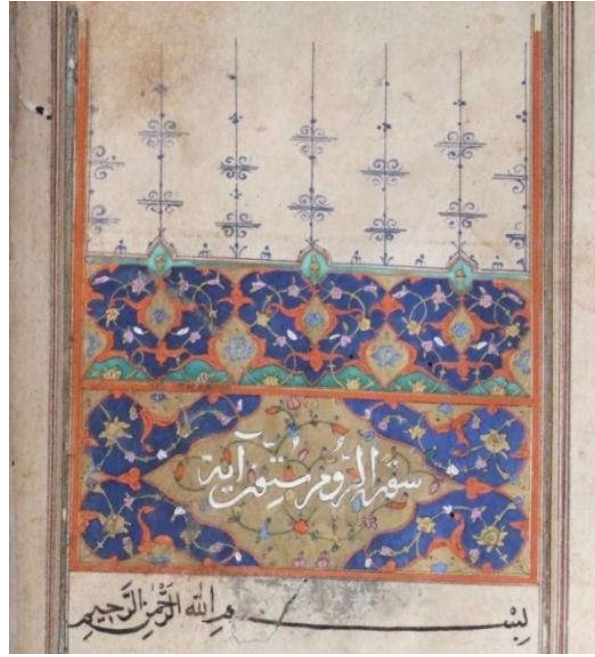 سورة الروم ستون آية
بِسْمِ اللهِ الرَّحْمٰنِ الرَّحِيمِ